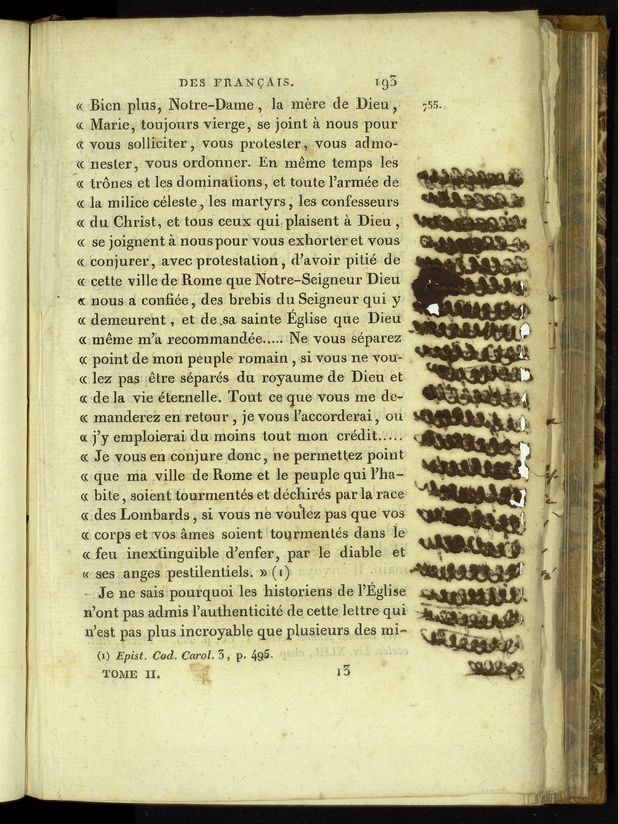 DES FRANÇAIS. 193
« Bien plus, Notre-Dame, la mère de Dieu, 755.
« Marie, toujours vierge, se joint à nous pour
« vous solliciter, vous protester, vous admo-
« nester, vous ordonner. En même temps les
« trônes et les dominations, et toute l'armée de
« la milice céleste, les martyrs, les confesseurs
« du Christ, et tous ceux qui plaisent à Dieu,
« se joignent à nous pour vous exhorter et vous
« conjurer, avec protestation, d'avoir pitié de
« cette ville de Rome que Notre-Seigneur Dieu
« nous a confiée, des brebis du Seigneur qui y
« demeurent, et de sa sainte Église que Dieu
« même m'a recommandée..... Ne vous séparez
« point de mon peuple romain, si vous ne vou-
« lez pas être séparés du royaume de Dieu et
« de la vie éternelle. Tout ce que vous me de-
« manderez en retour, je vous l'accorderai, ou
« j'y emploierai du moins tout mon crédit.....
« Je vous en conjure donc, ne permettez point
« que ma ville de Rome et le peuple qui l'ha-
« bite, soient tourmentés et déchirés par la race
« des Lombards, si vous ne voulez pas que vos
« corps et vos âmes soient tourmentés dans le
« feu inextinguible d'enfer, par le diable et
« ses anges pestilentiels. » (1)
Je ne sais pourquoi les historiens de l'Église
n'ont pas admis l'authenticité de cette lettre qui
n'est pas plus incroyable que plusieurs des mi-
(1) Epist. Cod. Carol. 3, p. 495.
TOME II. 13